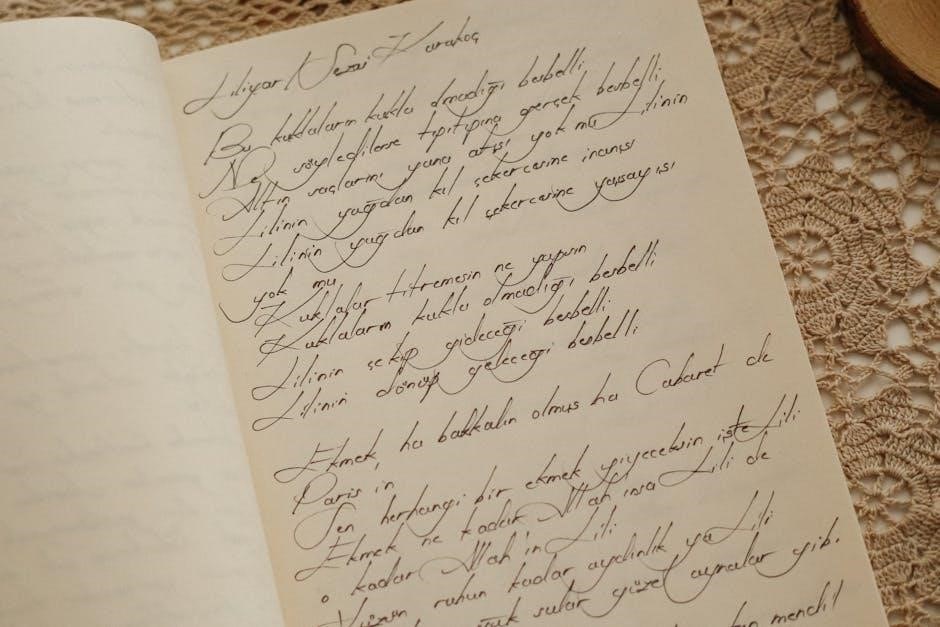 Liliyar Sezai Karakoç
Bu kuklaların kukla olmadığı besbelli
Ne söyledilerse tıpıtıpına gerçek besbelli
Altın saçlarını yana atışı yok mu Lilinin
Lilinin yağdan kıl çekercesine inanışı
Lilinin yağdan kıl çekercesine yaşayışı
yok mu
Kuklalar titremesin ne yapsın
Kuklaların kukla olmadığı besbelli
Lilinin çekip gideceği besbelli
Lilinin dönüp geleceği besbelli
Ekmek, ha bakkalın olmuş ha Cabaret de
Paris in
Sen herhangi bir ekmek yiyeceksin işte Lili
Ekmek ne kadar Allah ınsa Lili de
o kadar Allah'ın Lili
Yüzün ruhun kadar aydınlık ya Lili
sular güzel aynalar gibi.
mendil